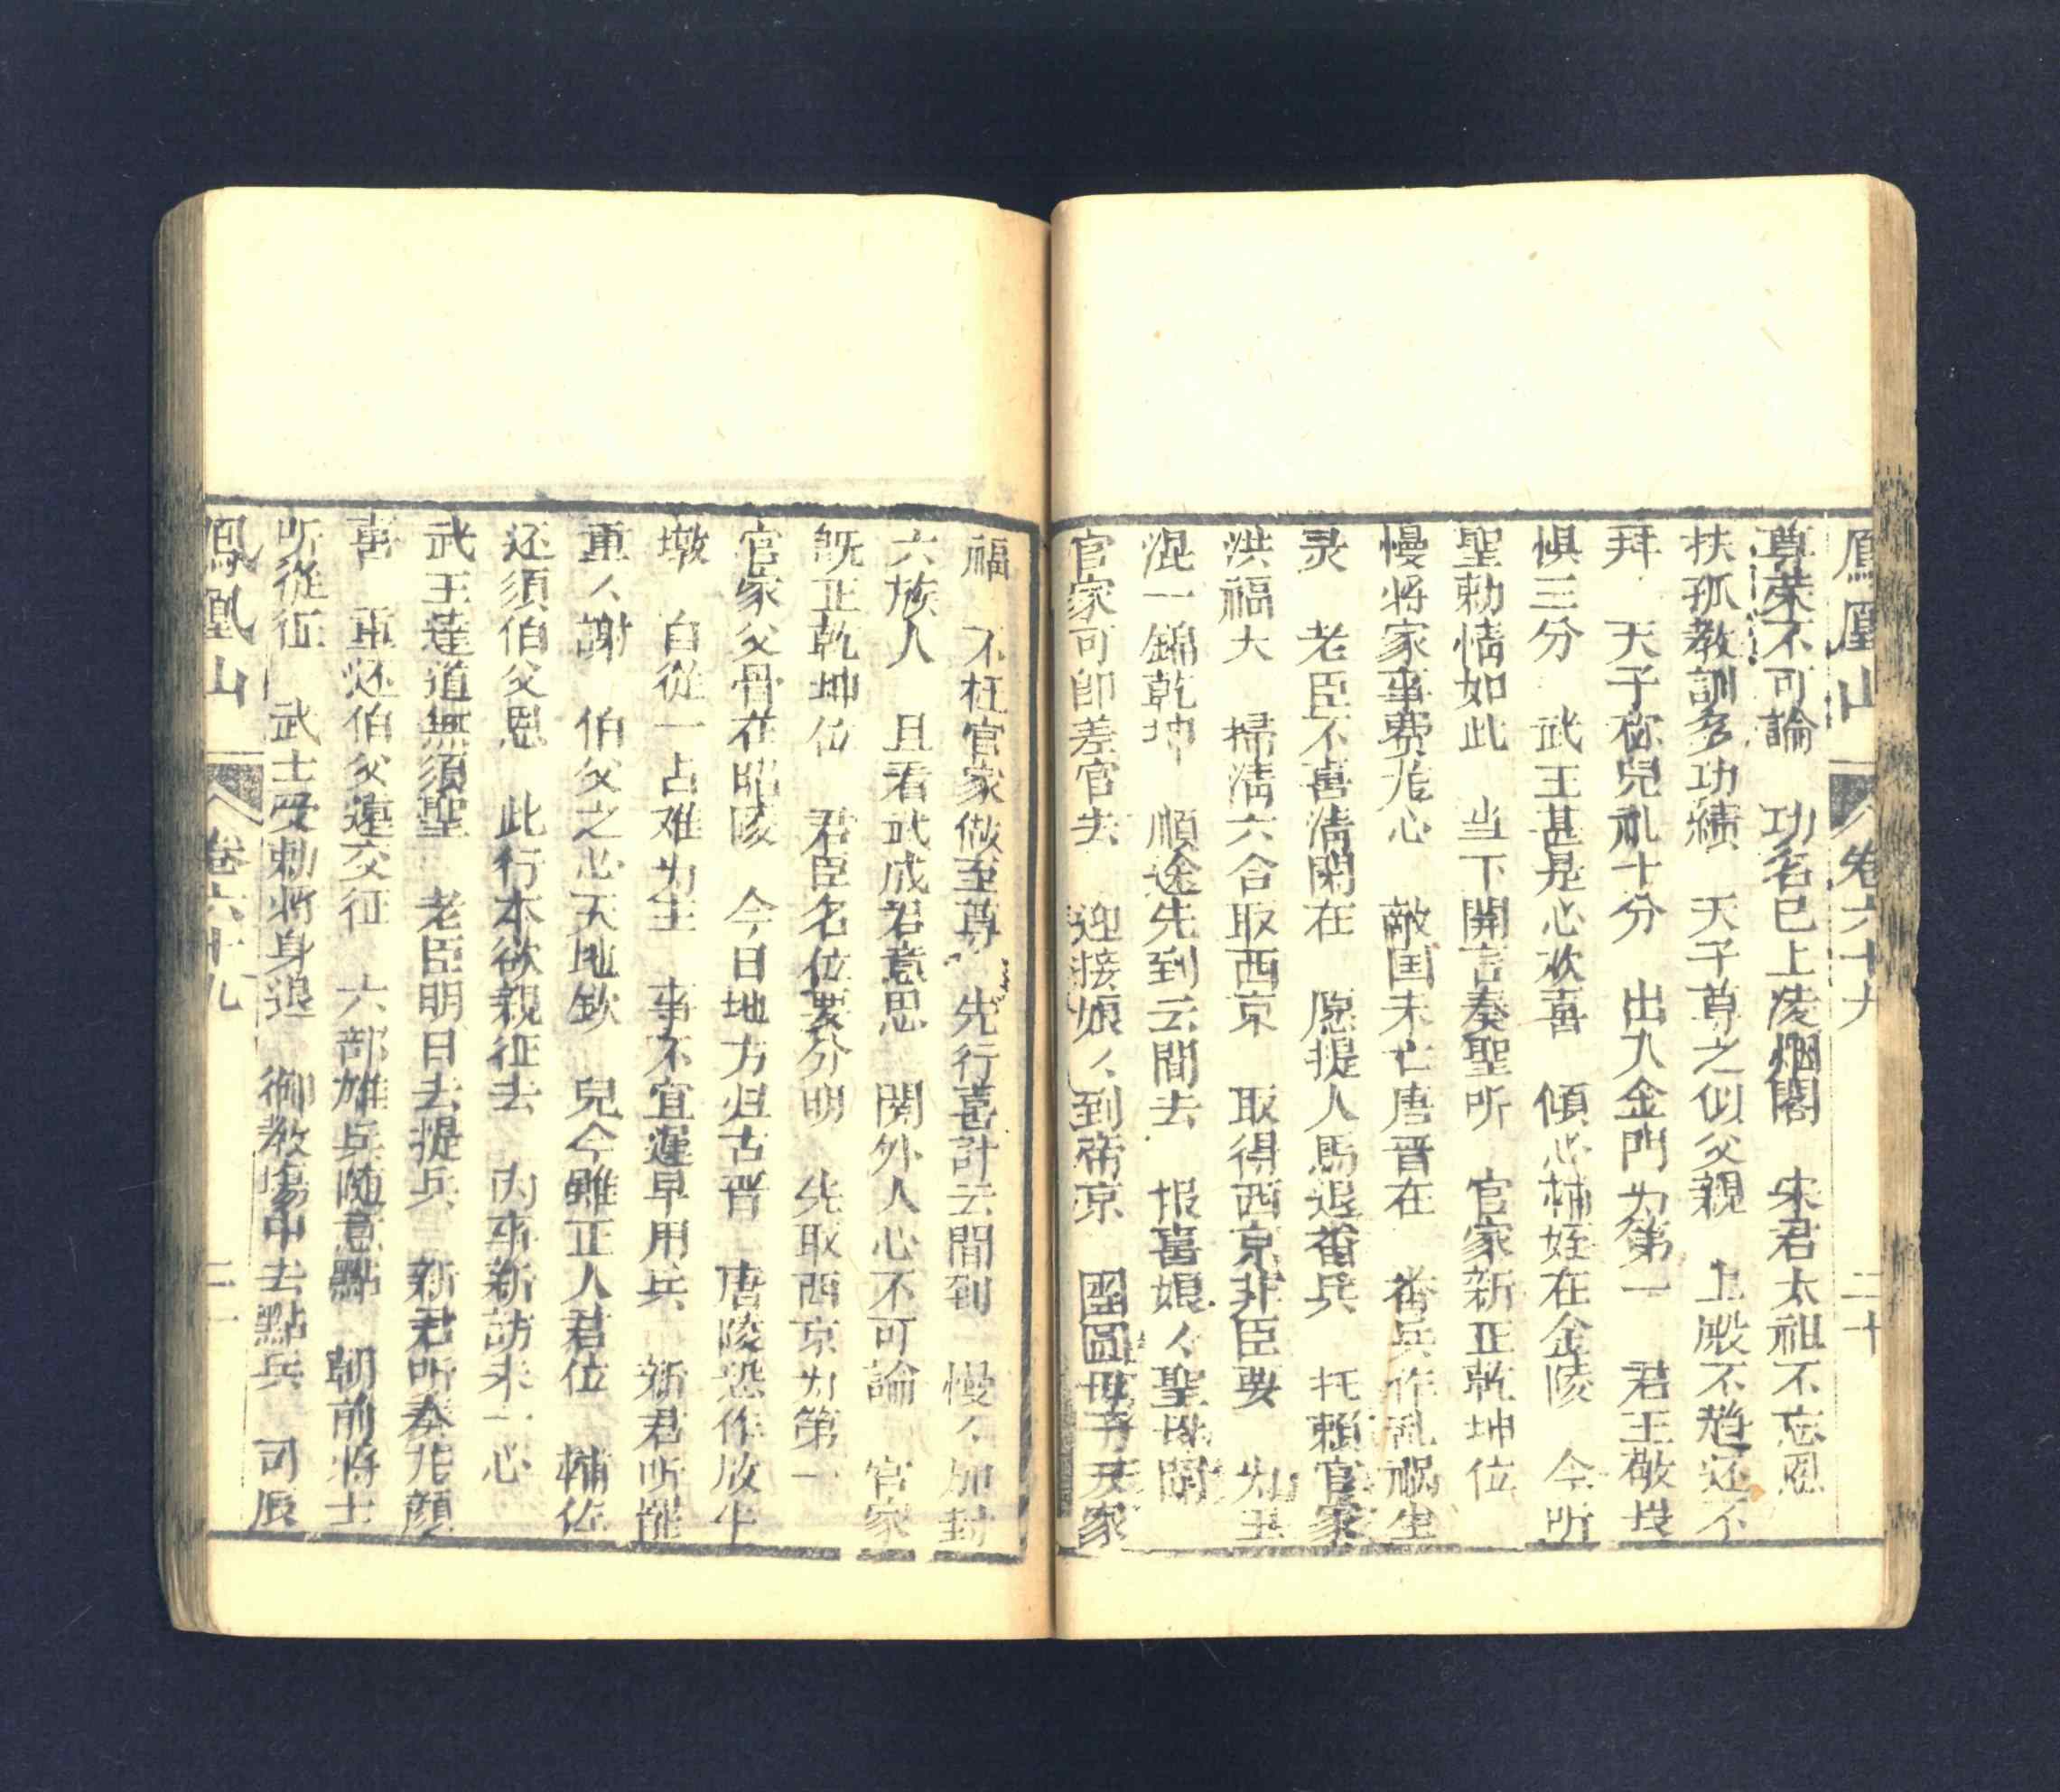 鳳凰山 卷六十九 二十
尊荣不可論 功名已上凌烟閣 宋君太祖不忘恩
扶孤教訓多功績 天子尊之似父親 上殿不趋还不
拜 天子称兒礼十分 出入金門为第一 君王敬畏
惧三分 武王甚是心欢喜 傾心補姪在金陵 今所
聖勅情如此 当下開言奏聖听 官家新正乾坤位
慢将家事费尨心 敵囯未亡唐晋在 番兵作乱禍生
灵 老臣不喜清閑在 愿提人馬退番兵 托賴官家
洪福大 掃清六合取西京 取得西京非臣要 为主
混一錦乾坤 順途先到云間去 报喜娘々聖母聞
官家可即差官去 迎接娘々到帝京 團圓母子天家
福 不枉官家做至尊 先行喜計云間到 慢々加封
六族人 且看武成君意思 関外人心不可論 官家
既正乾坤位 君臣名位要分明 先取西京为第一
官家父骨在昭陵 今日地方归古晋 唐陵恐作放牛
墩 自從一占难为主 事不宜遲早用兵 新君听罷
重々謝 伯父之心天地欽 兒今雖正人君位 輔佐
还須伯父恩 此行本欲親征去 内事新訪未一心
武王達道無須聖 老臣明日去提兵 新君听奏尨顏
喜 重还伯父遠交征 六部雄兵随意點 朝前将士
听從征 武士受勅将身退 御教塲中去點兵 司辰
鳳凰山 卷六十九 二一